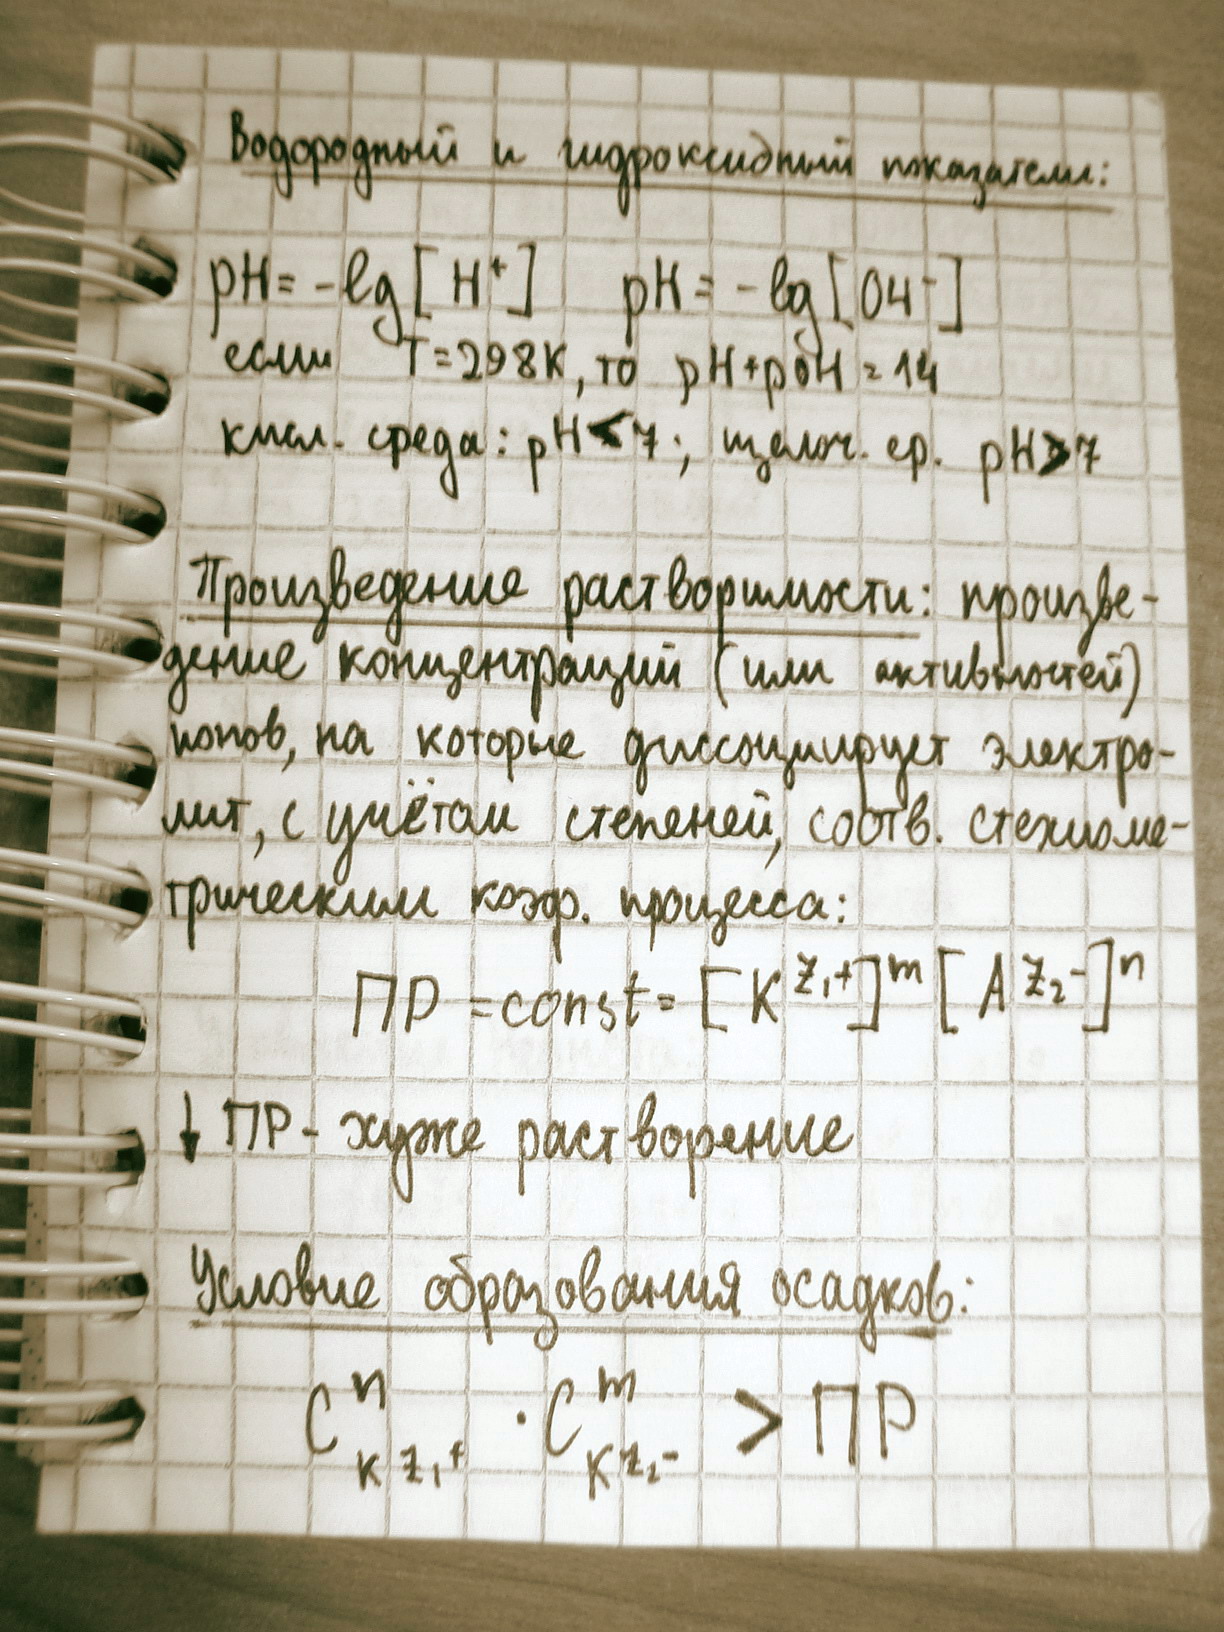 Водородный и гидроксидный показатели:
pH = -lg[H⁺] pH = -lg[OH⁻]
если T=298K, то pH+pOH=14
кисл. среда: pH<7; щелоч. ср. pH>7
Произведение растворимости: произве-
дение концентраций (или активностей)
ионов, на которые диссоциирует электро-
лит, с учётом степеней, соотв. стехиоме-
трическим коэф. процесса:
ПР = const = [K^{z₁+}]^m [A^{z₂-}]^n
↓ ПР - хуже растворение
Условие образования осадков:
C^n_{K^{z₁+}} · C^m_{K^{z₂-}} > ПР